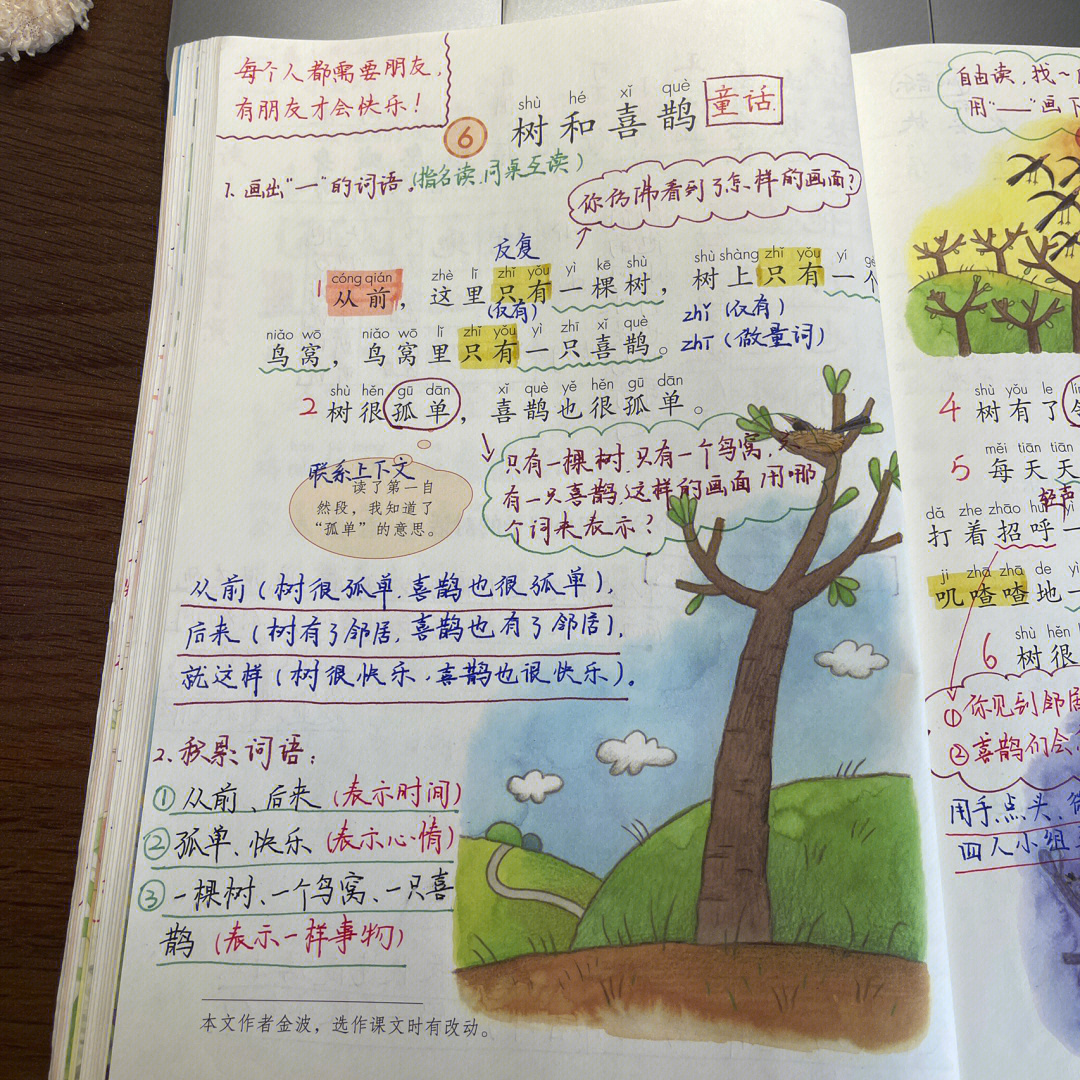 每个人都需要朋友,
有朋友才会快乐!
shù hé xǐ què
6 树和喜鹊 童话
1. 画出"一"的词语。(指名读.同桌互读)
你仿佛看到了怎样的画面?
反复
cóng qián zhè lǐ zhǐ yǒu yì kē shù shù shàng zhǐ yǒu yí
1 从前，这里只有一棵树，树上只有一个
(仅有)
zhǐ (仅有)
niǎo wō niǎo wō lǐ zhǐ yǒu yì zhī xǐ què
鸟窝，鸟窝里只有一只喜鹊。
zhī (做量词)
shù hěn gū dān xǐ què yě hěn gū dān
2 树很孤单，喜鹊也很孤单。
只有一棵树.只有一个鸟窝.只
有一只喜鹊,这样的画面用哪
个词来表示?
联系上下文
读了第一自
然段，我知道了
“孤单”的意思。
从前(树很孤单.喜鹊也很孤单),
后来(树有了邻居,喜鹊也有了邻居),
就这样(树很快乐,喜鹊也很快乐)。
2. 积累词语:
① 从前、后来(表示时间)
② 孤单、快乐(表示心情)
③ 一棵树、一个鸟窝、一只喜
鹊 (表示一样事物)
本文作者金波，选作课文时有改动。
自由读,找一
用"一"画
shù yǒu le
4 树有了
měi tiān tiān
5 每天天
轻声
dǎ zhe zhāo hu yì
打着招呼一
jī zhā zhā de yì
叽喳喳地一
shù hěn
6 树很
① 你见到邻居
② 喜鹊们会
用手、点头、
四人小组